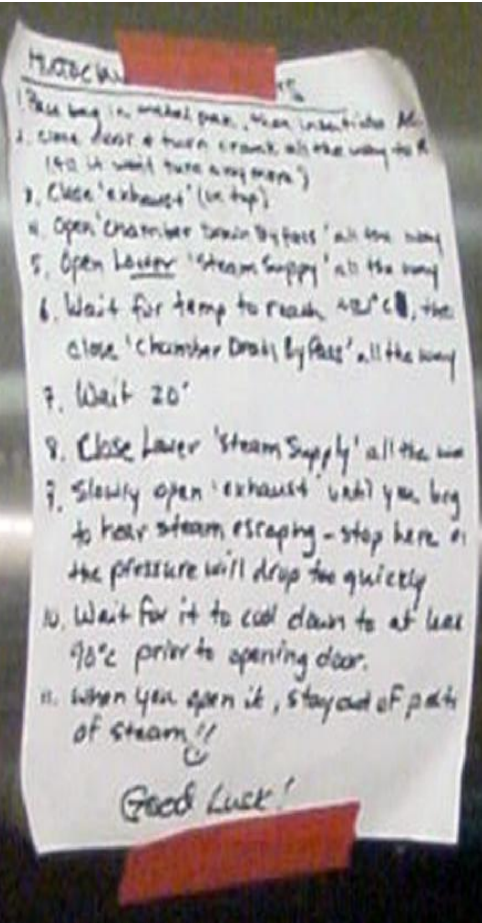 1. Place bag in metal pan, then insert into
2. Close door & turn crank all the way to R
(til it wont turn anymore)
3. Close 'exhaust' (on top)
4. Open 'Chamber Drain By Pass' all the way
5. Open Lower 'Steam Supply' all the way
6. Wait for temp to reach °C, the
close 'Chamber Drain By Pass' all the way
7. Wait 20'
8. Close Lower 'Steam Supply' all the
9. Slowly open 'exhaust' until you beg
to hear steam escaping - stop here or
the pressure will drop too quickly
10. Wait for it to cool down to at leas
90°C prior to opening door.
11. When you open it, stay out of path
of steam!!
Good Luck!